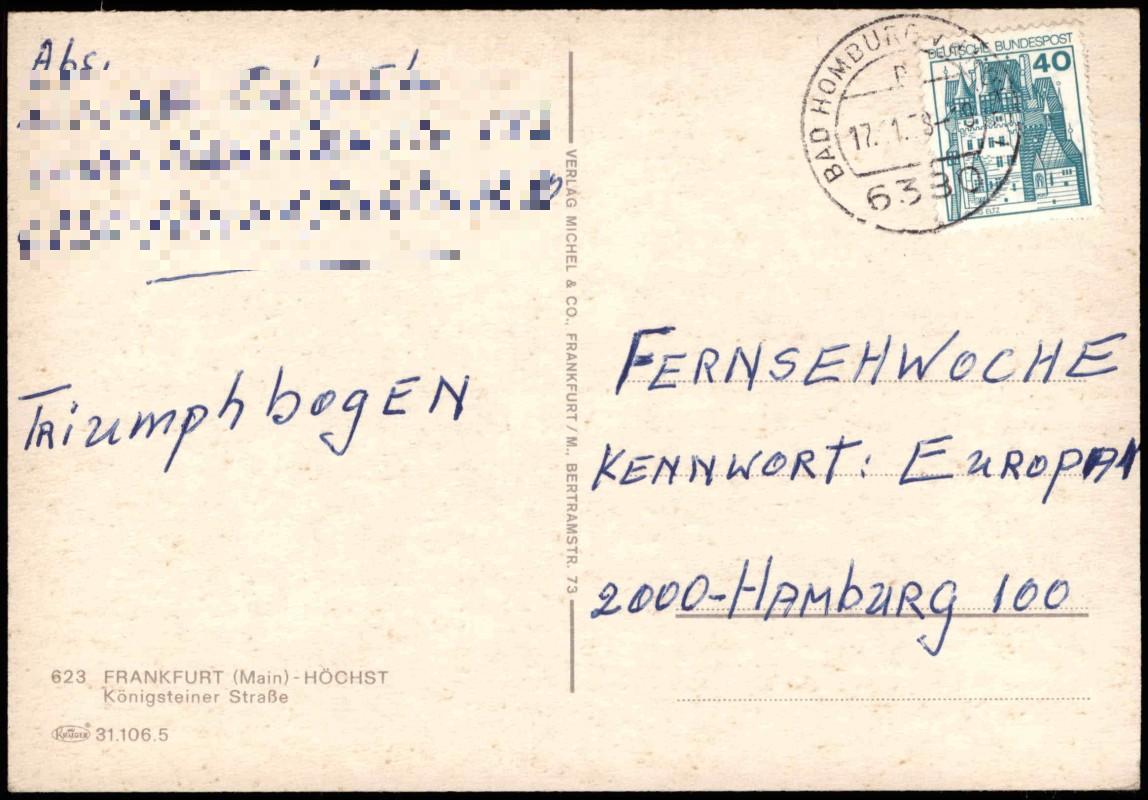 Abs.
Triumphbogen
623 FRANKFURT (Main) - HÖCHST
Königsteiner Straße
KRÜGER 31.106.5
VERLAG MICHEL & CO., FRANKFURT/M., BERTRAMSTR. 73
BAD HOMBURG
17. 1.
6380
DEUTSCHE BUNDESPOST
40
ELTZ
FERNSEHWOCHE
KENNWORT: EUROPA
2000-HAMBURG 100